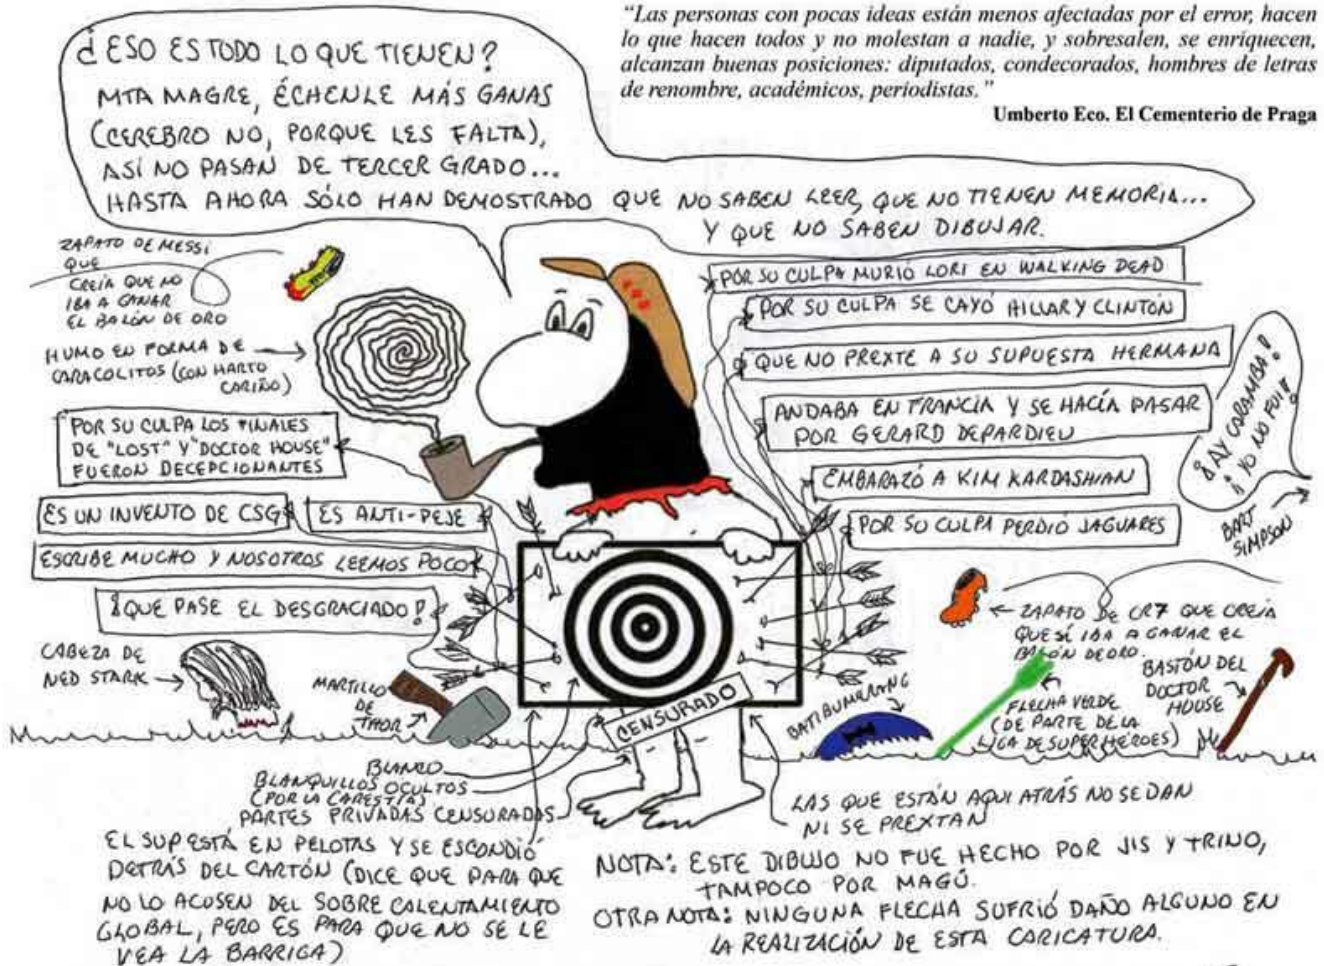 “Las personas con pocas ideas están menos afectadas por el error, hacen
lo que hacen todos y no molestan a nadie, y sobresalen, se enriquecen,
alcanzan buenas posiciones: diputados, condecorados, hombres de letras
de renombre, académicos, periodistas.”
Umberto Eco. El Cementerio de Praga
¿ESO ES TODO LO QUE TIENEN?
MTA MAGRE, ÉCHENLE MÁS GANAS
(CEREBRO NO, PORQUE LES FALTA),
ASÍ NO PASAN DE TERCER GRADO...
HASTA AHORA SÓLO HAN DEMOSTRADO QUE NO SABEN LEER, QUE NO TIENEN MEMORIA...
Y QUE NO SABEN DIBUJAR.
ZAPATO DE MESSI
QUE
CREÍA QUE NO
IBA A GANAR
EL BALÓN DE ORO
HUMO EN FORMA DE
CARACOLITOS (CON HARTO
CARIÑO)
POR SU CULPA LOS FINALES
DE "LOST" Y "DOCTOR HOUSE"
FUERON DECEPCIONANTES
ES UN INVENTO DE CSG
ES ANTI-PEJE
ESCRIBE MUCHO Y NOSOTROS LEEMOS POCO
¡QUE PASE EL DESGRACIADO!
CABEZA DE
NED STARK
MARTILLO
DE
THOR
POR SU CULPA MURIÓ LORI EN WALKING DEAD
POR SU CULPA SE CAYÓ HILLARY CLINTON
QUE NO PREXTE A SU SUPUESTA HERMANA
ANDABA EN FRANCIA Y SE HACÍA PASAR
POR GERARD DEPARDIEU
EMBARAZÓ A KIM KARDASHIAN
POR SU CULPA PERDIÓ JAGUARES
¡AY CARAMBA!
¡YO NO FUI!
BART
SIMPSON
ZAPATO DE CR7 QUE CREÍA
QUE SÍ IBA A GANAR EL
BALÓN DE ORO.
BASTÓN DEL
DOCTOR
HOUSE
FLECHA VERDE
(DE PARTE DE LA
LIGA DE SUPER HÉROES)
BATIBUMERANG
CENSURADO
BLANCO
BLANQUILLOS OCULTOS
(POR LA CARESTÍA)
PARTES PRIVADAS CENSURADAS
LAS QUE ESTÁN AQUI ATRÁS NO SE DAN
NI SE PREXTAN
EL SUP ESTÁ EN PELOTAS Y SE ESCONDIÓ
DETRÁS DEL CARTÓN (DICE QUE PARA QUE
NO LO ACUSEN DEL SOBRE CALENTAMIENTO
GLOBAL, PERO ES PARA QUE NO SE LE
VEA LA BARRIGA)
NOTA: ESTE DIBUJO NO FUE HECHO POR JIS Y TRINO,
TAMPOCO POR MAGÚ.
OTRA NOTA: NINGUNA FLECHA SUFRIÓ DAÑO ALGUNO EN
LA REALIZACIÓN DE ESTA CARICATURA.